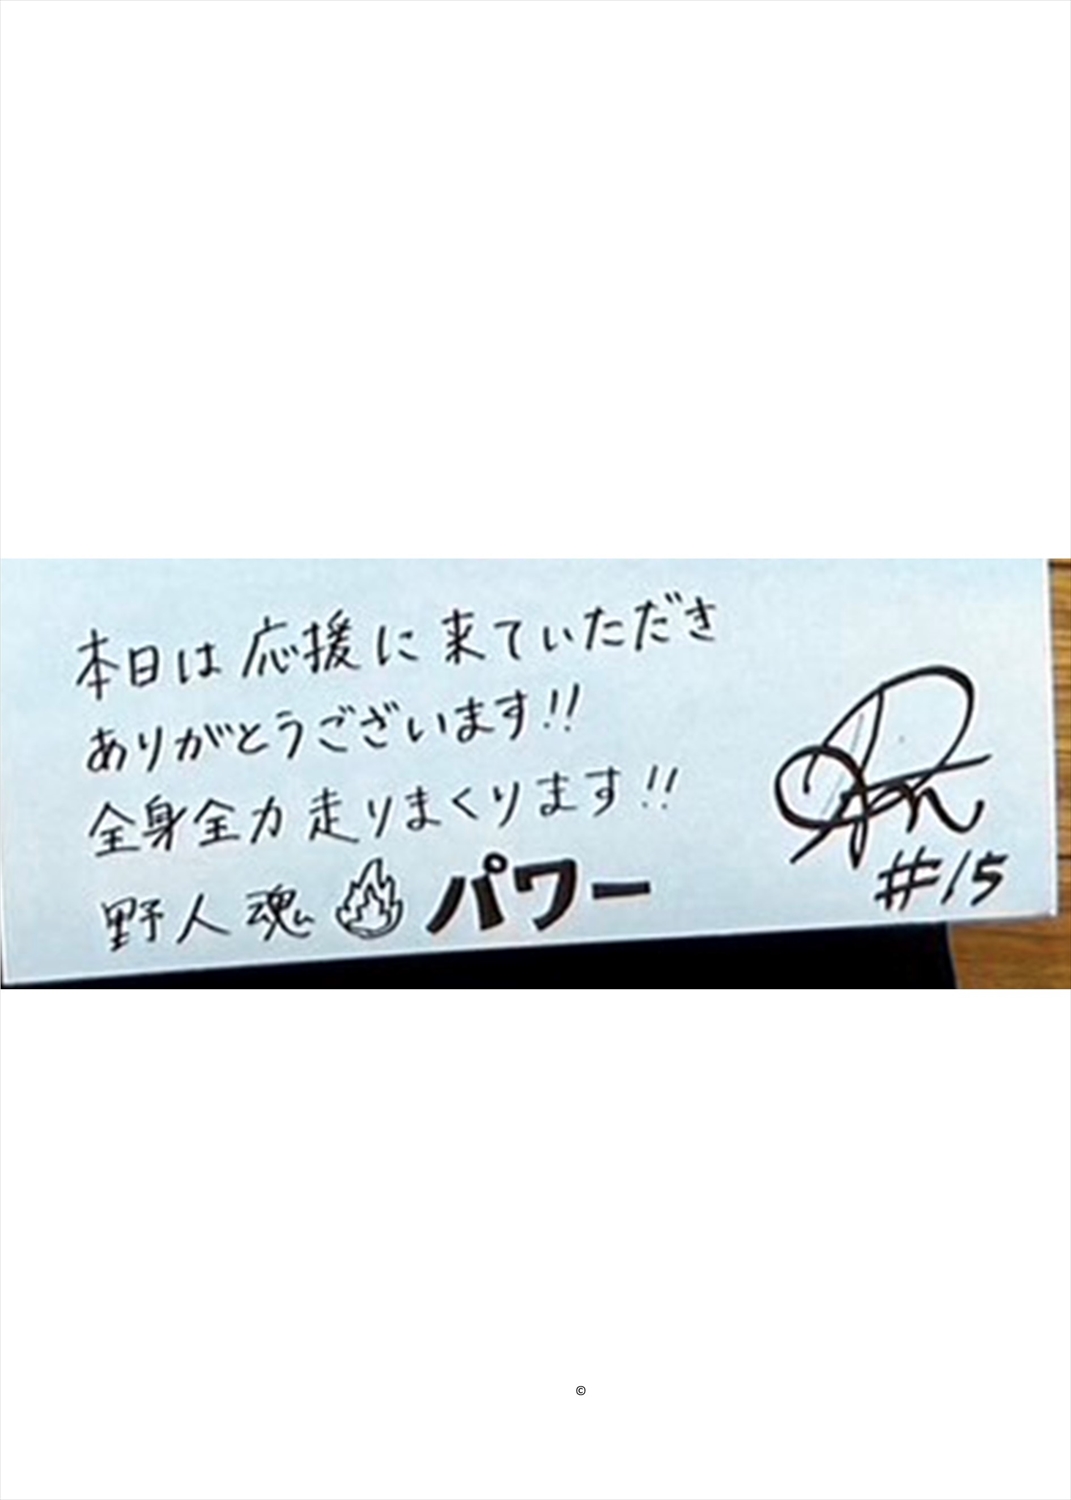 本日は応援に来ていただき
ありがとうございます!!
全身全力走りまくります!!
野人魂パワー
#15
©